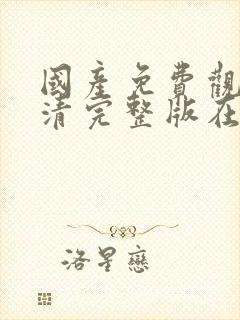 國產免費觀
清完整版在
洛星戀